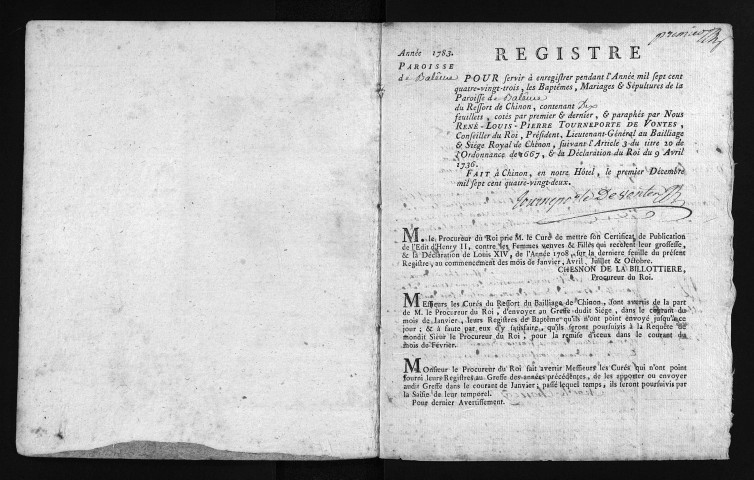 premier
Année 1783.
REGISTRE
PAROISSE
de Balême
POUR servir à enregistrer pendant l'Année mil sept cent
quatre-vingt-trois, les Baptêmes, Mariages & Sépultures de la
Paroisse de Balême
du Ressort de Chinon, contenant Dix
feuillets, cotés par premier & dernier, & paraphés par Nous
RENÉ-LOUIS-PIERRE TOURNEPORTE DE VONTES,
Conseiller du Roi, Président, Lieutenant-Général au Bailliage
& Siége Royal de Chinon, suivant l'Article 3 du titre 20 de
l'Ordonnance de 1667, & la Déclaration du Roi du 9 Avril
1736.
FAIT à Chinon, en notre Hôtel, le premier Décembre
mil sept cent quatre-vingt-deux.
Tourneporte De Vontes
M. le Procureur du Roi prie M. le Curé de mettre son Certificat de Publication
de l'Edit d'Henry II, contre les Femmes veuves & Filles qui recelent leur grossesse,
& la Déclaration de Louis XIV, de l'Année 1708, sur la derniere feuille du présent
Registre, au commencement des mois de Janvier, Avril, Juillet & Octobre.
CHESNON DE LA BILLOTTIERE,
Procureur du Roi.
Messieurs les Curés du Ressort du Bailliage de Chinon, sont avertis de la part
de M. le Procureur du Roi, d'envoyer au Greffe dudit Siége, dans le courant du
mois de Janvier, leurs Registres de Baptême qu'ils n'ont point envoyé jusqu'à ce
jour; & à faute par eux d'y satisfaire, qu'ils seront poursuivis à la Requête de
mondit Sieur le Procureur du Roi, pour la remise d'iceux dans le courant du
mois de Février.
Monsieur le Procureur du Roi fait avertir Messieurs les Curés qui n'ont point
fourni leurs Registres au Greffe des années précédentes, de les apporter ou envoyer
audit Greffe dans le courant de Janvier; passé lequel temps, ils seront poursuivis par
la Saisie de leur temporel.
Pour dernier Avertissement.